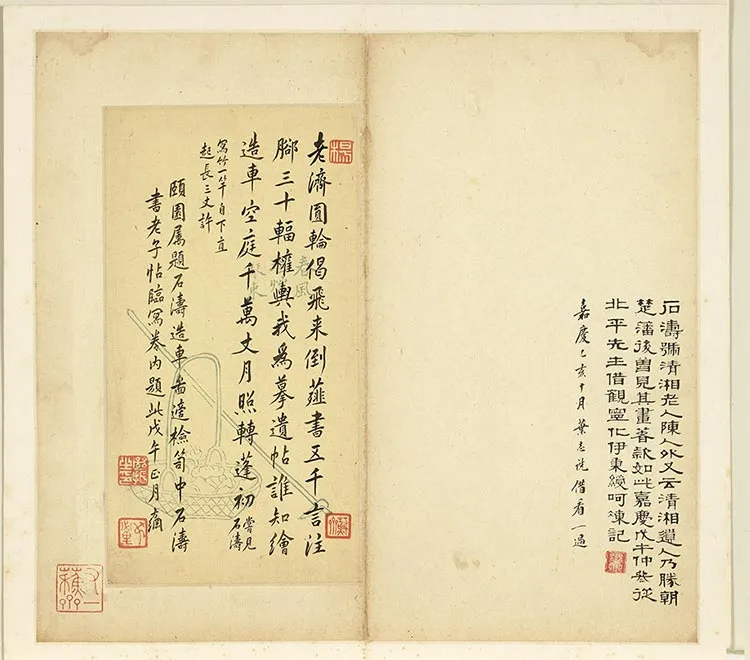 石濤號清湘老人陳人外又云清湘遺人乃勝朝
楚藩後曽見其畫著款如此嘉慶戊午仲冬從
北平先生借觀寧化伊秉綬呵凍記
嘉慶乙亥十月葉志詵借看一過
老濟圓輪偈飛来倒薤書五千言注
腳三十輻權輿我為摹遺帖誰知繪
造車空庭千萬丈月照轉蓬初
嘗見
石濤
寫竹一竿自下直
起長三丈許
頤園屬題石濤造車畵遂檢笥中石濤
書老子帖臨寫卷內題此戊午正月
春風